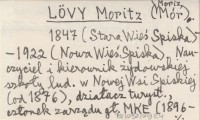 LÖVY Moritz (Moriz, Mór),
1847 (Stara Wieś Spiska)
-1922 (Nowa Wieś Spiska). Nau-
czyciel i kierownik żydowskiej
szkoły lud. w Nowej Wsi Spiskiej
(od 1876), działacz turyst.,
członek zarządu gł. MKE (1896-